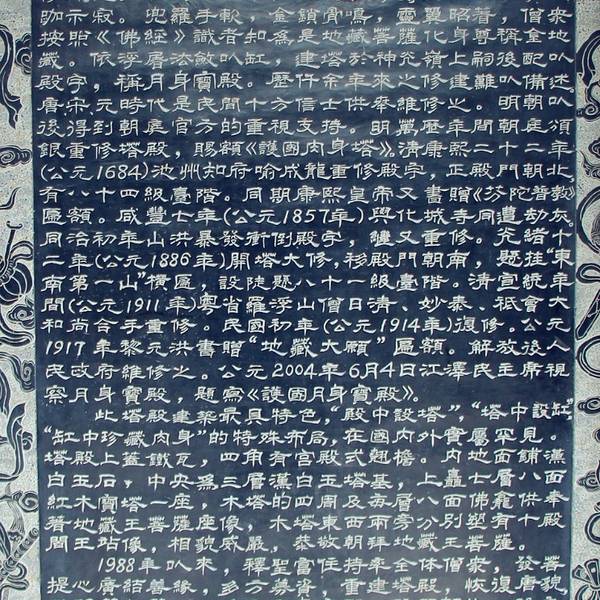 跏示寂。兜羅手軟，金鎖骨鳴，靈異昭著，僧衆
按照《佛經》識者知爲是地藏菩薩化身尊稱金地
藏。依浮屠法斂以缸，建塔於神光嶺上嗣後配以
殿宇，稱月身寶殿。歷仟余年來之修建難以備述。
唐宋元時代是民間十方信士供奉維修之。明朝以
後得到朝庭官方的重視支持。明萬歷年間朝庭頒
銀重修塔殿，賜額《護國肉身塔》。清康熙二十二年
(公元1684)池州知府喻成龍重修殿宇，正殿門朝北，
有八十四級臺階。同期康熙皇帝又書贈《芬陀普教》
匾額。咸豐七年(公元1857年)與化城寺同遭劫灰。
同治初年山洪暴發衝倒殿宇，纔又重修。光緒十
二年(公元1886年)開塔大修，移殿門朝南，懸挂"東
南第一山"橫匾，設陡懸八十一級臺階。清宣統年
間(公元1911年)粤省羅浮山僧日清、妙泰、祇會大
和尚合手重修。民國初年(公元1914年)復修。公元
1917年黎元洪書贈"地藏大願"匾額。解放後人
民政府維修之。公元2004年6月4日江澤民主席視
察月身寶殿，題寫《護國月身寶殿》。
此塔殿建築最具特色，"殿中設塔"，"塔中設缸"
"缸中珍藏肉身"的特殊布局，在國内外實屬罕見。
塔殿上蓋鐵瓦，四角有宫殿式翹檐。内地面鋪漢
白玉石，中央爲三層漢白玉塔基，上矗七層八面
紅木寶塔一座，木塔的四周及每層八面佛龕供奉
着地藏王菩薩座像，木塔東西兩旁分别塑有十殿
閻王站像，相貌威嚴，恭敬朝拜地藏王菩薩。
1988年以來，釋聖富住持率全體僧衆，發菩
提心廣結善緣，多方募資，重建塔殿，恢復唐貌，